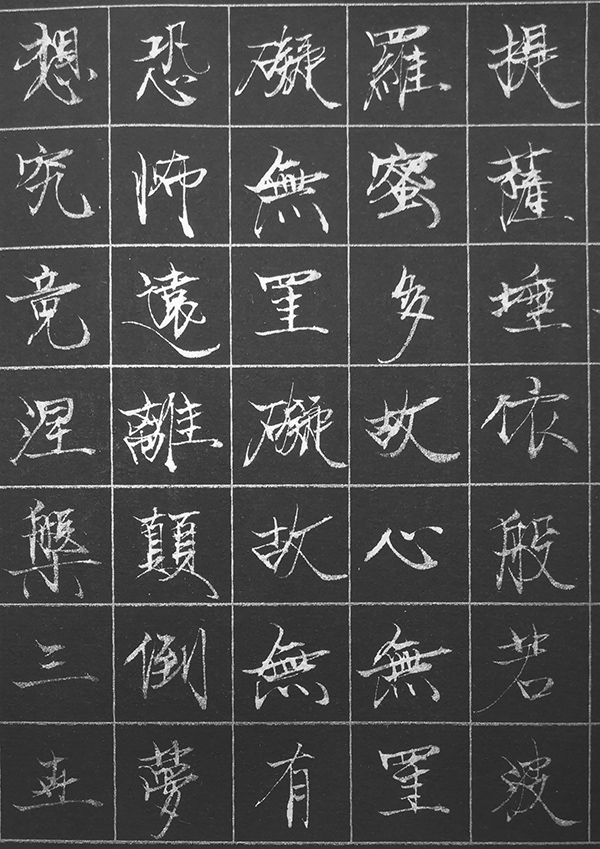 提薩埵依般若波
羅蜜多故心無罣
礙無罣礙故無有
恐怖遠離顛倒夢
想究竟涅槃三世